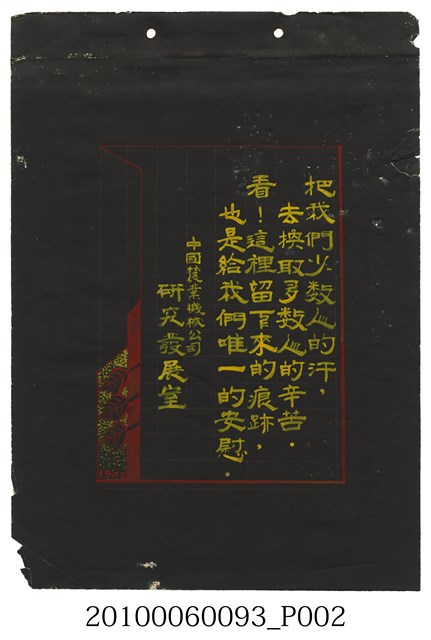 把我們少数人的汗，
去換取多数人的辛苦．
看！這裡留下來的痕跡，
也是給我們唯一的安慰．
中國建業機械公司
研究發展室
20100060093_P002